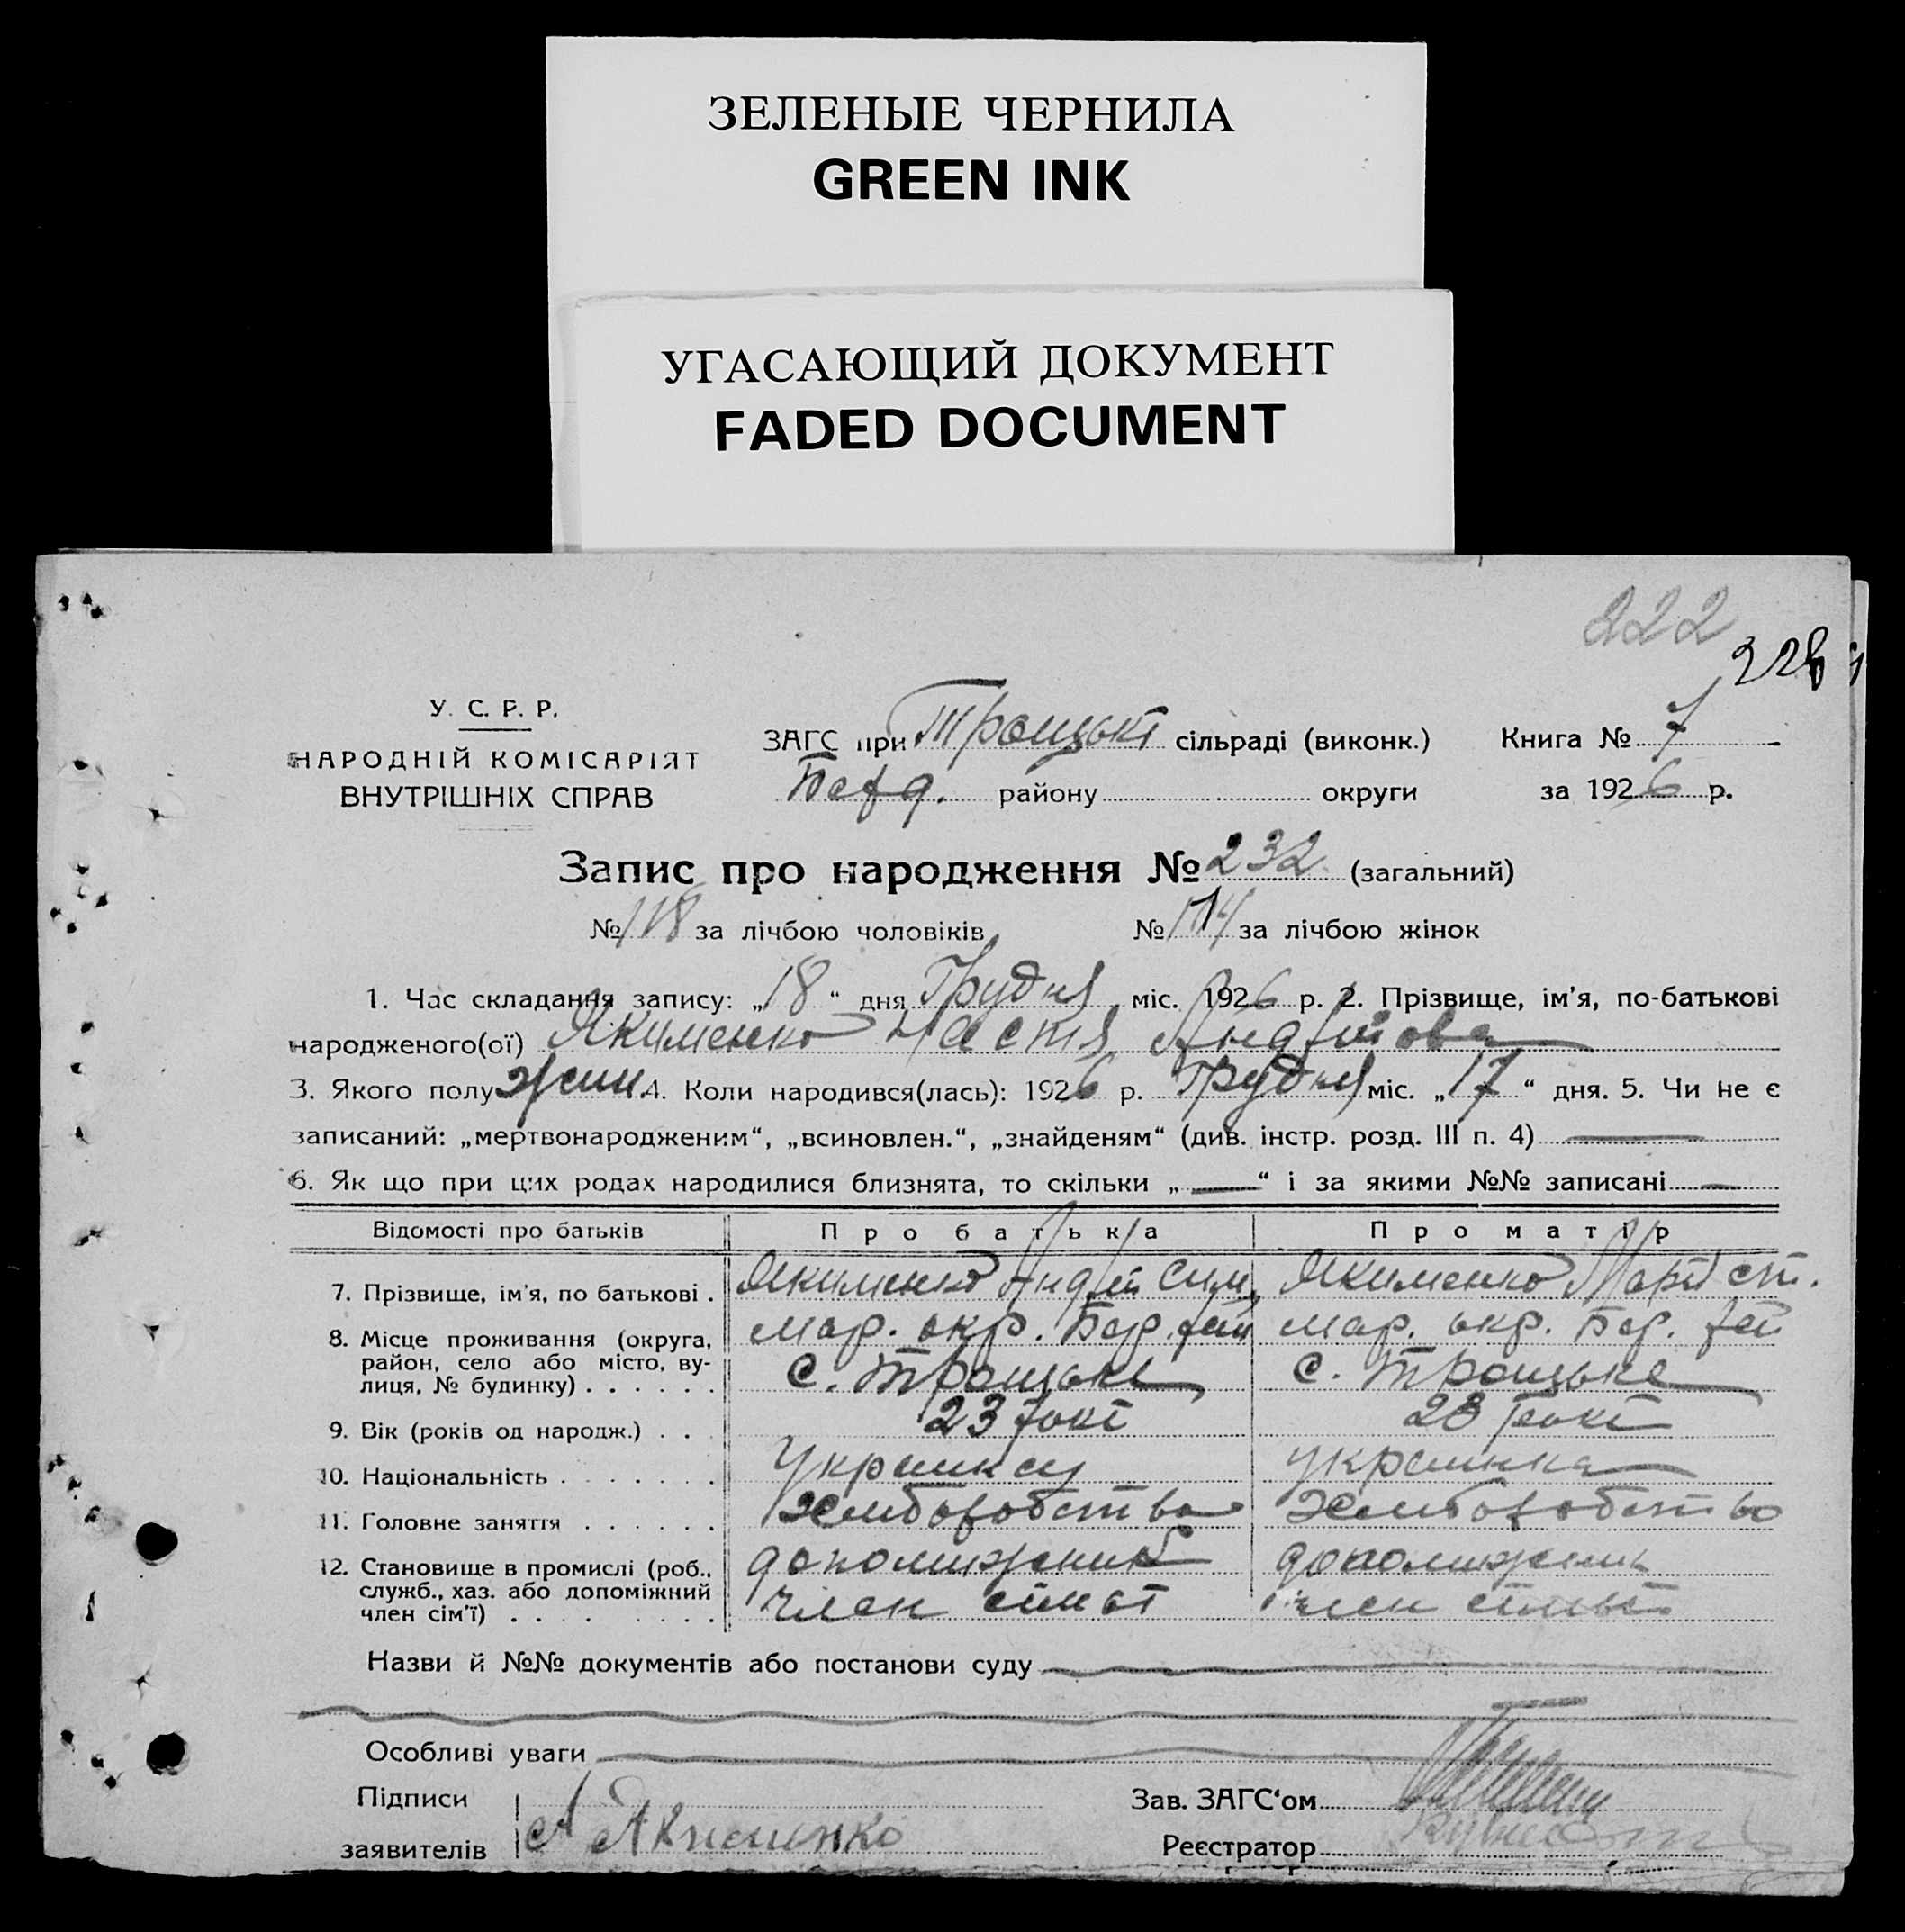 ЗЕЛЕНЫЕ ЧЕРНИЛА
GREEN INK
УГАСАЮЩИЙ ДОКУМЕНТ
FADED DOCUMENT
222
228
У. С. Р. Р.
НАРОДНІЙ КОМІСАРІЯТ
ВНУТРІШНІХ СПРАВ
ЗАГС при Троцькі сільраді (виконк.) Книга № 7
району округи за 1926 р.
Запис про народження № 232 (загальний)
№ 118 за лічбою чоловіків № 114 за лічбою жінок
1. Час складання запису: „18“ дня Грудня міс. 1926 р. 2. Прізвище, ім'я, по-батькові
народженого(ої) Якименко Настя Андріїова
3. Якого полу жін. 4. Коли народився(лась): 1926 р. Грудня міс. „17“ дня. 5. Чи не є
записаний: „мертвонародженим“, „всиновлен.“, „знайденям“ (див. інстр. розд. III п. 4)
6. Як що при цих родах народилися близнята, то скільки „—“ і за якими №№ записані —
Відомості про батьків Про батька Про матір
7. Прізвище, ім'я, по батькові . Якименко Андрій Сим. Якименко Марія ст.
8. Місце проживання (округа, мар. окр. Бер. рай мар. окр. Бер. рай
район, село або місто, ву- с. Троцьке с. Троцьке
лиця, № будинку) . . . . . .
9. Вік (років од народж.) . . . 23 рокі 23 рокі
10. Національність . . . . . . . українка
11. Головне заняття . . . . . . Хліборобство Хліборобство
12. Становище в промислі (роб., допоміжний допоміжний
служб., хаз. або допоміжний член сімьі член сімьі
член сім'ї) . . . . . . . .
Назви й №№ документів або постанови суду
Особливі уваги
Підписи Зав. ЗАГС'ом
заявителів А Якименко Реєстратор